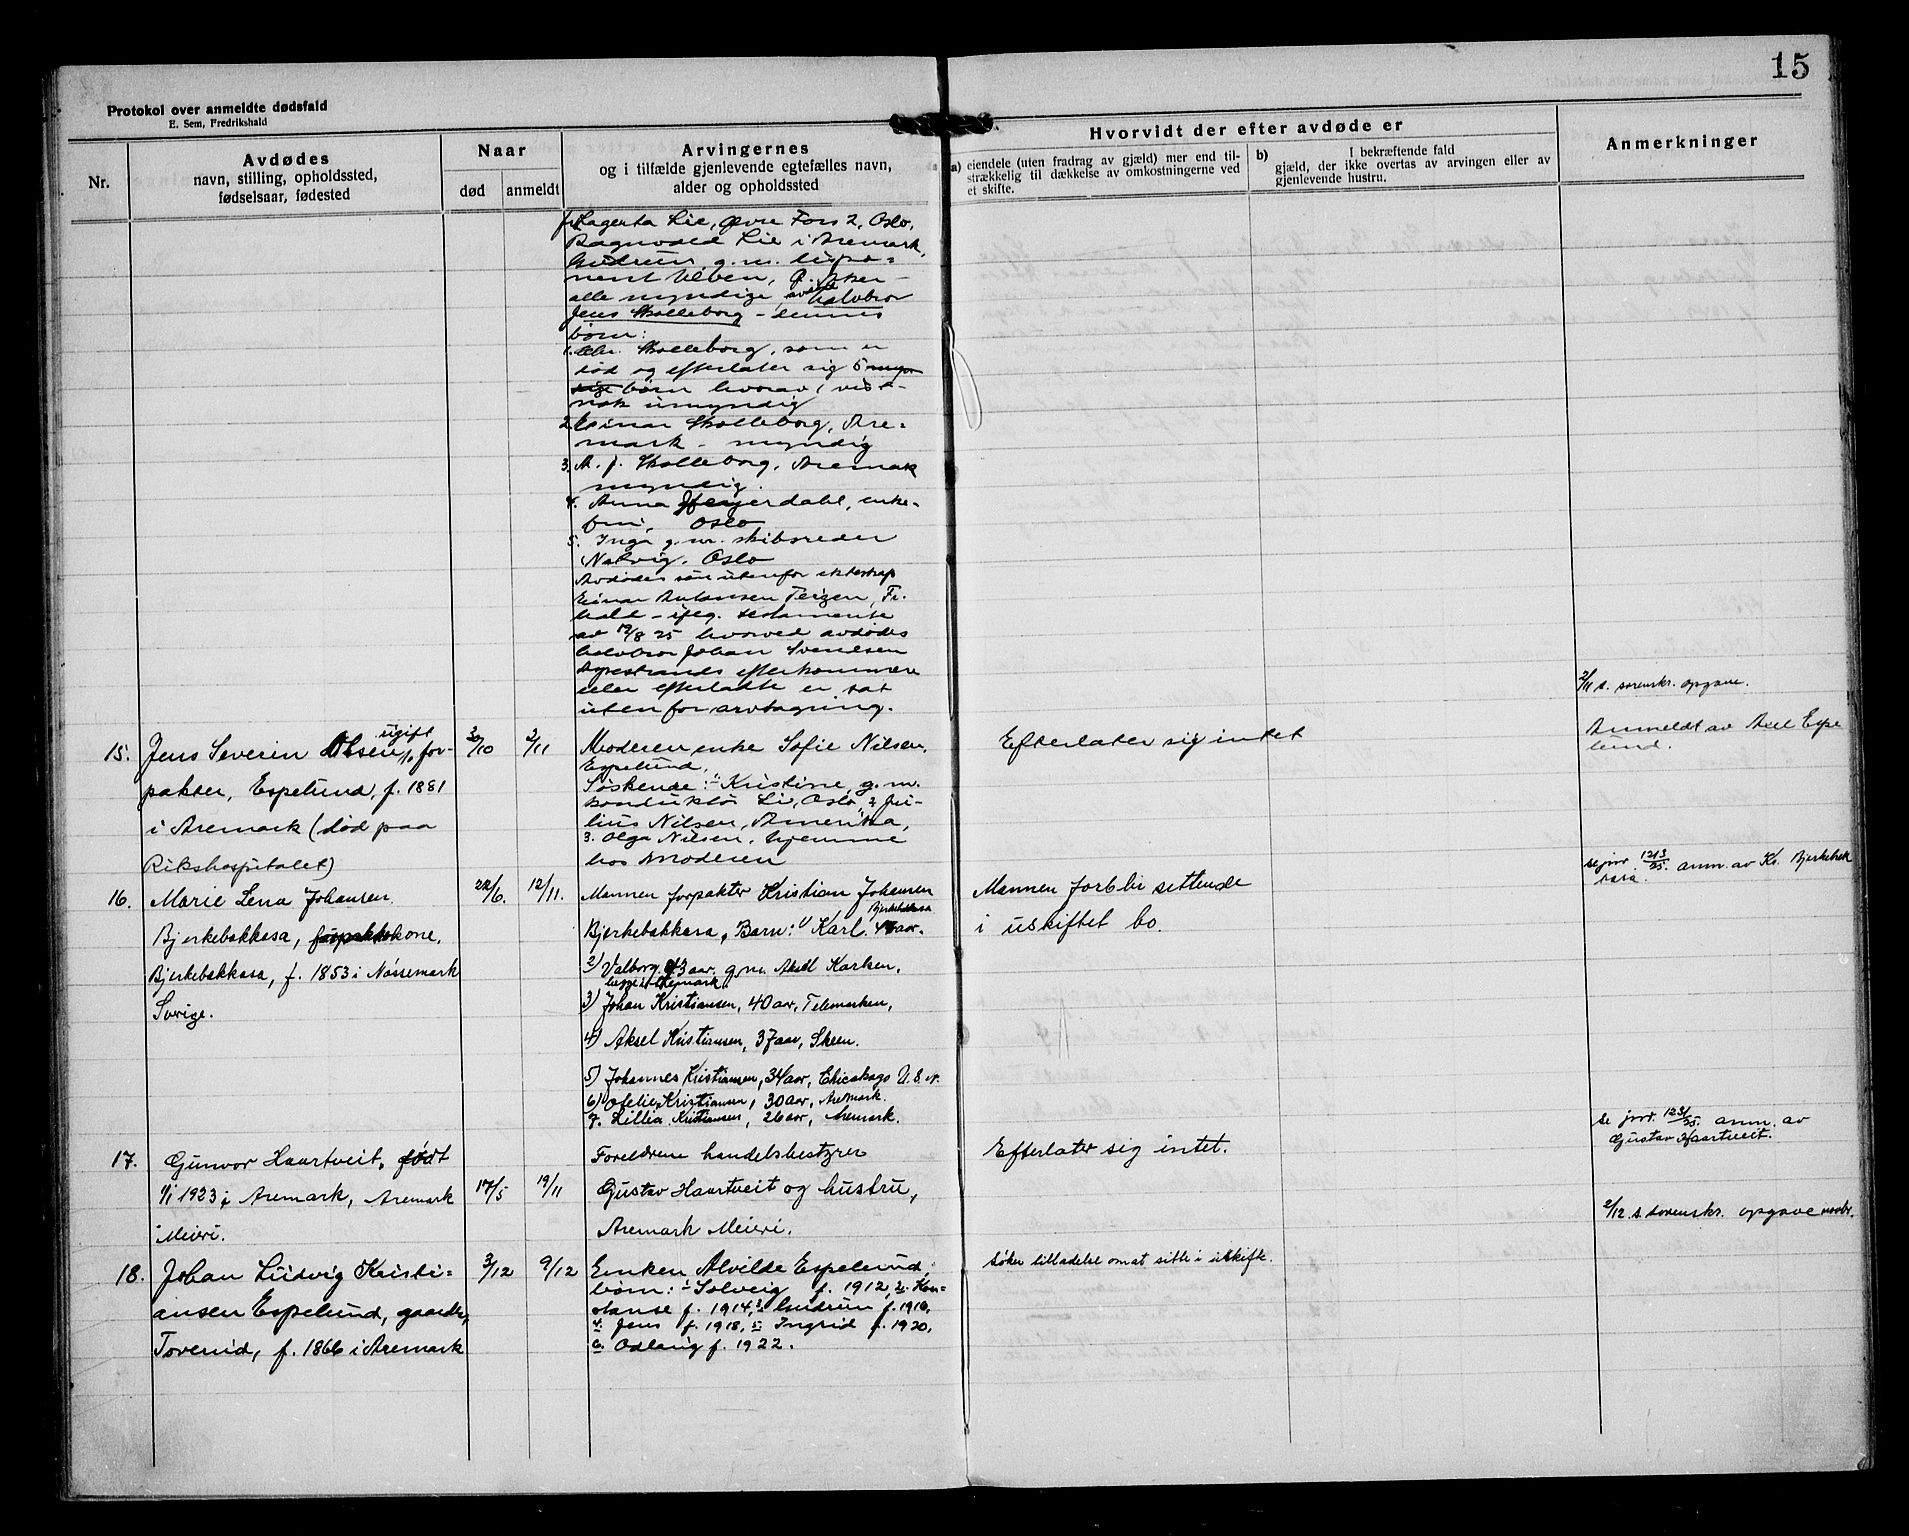 15
Protokol over anmeldte dødsfald
E. Sem, Fredrikshald
Nr.
Avdødes
navn, stilling, opholdssted,
fødselsaar, fødested
Naar
død
anmeldt
Arvingernes
og i tilfælde gjenlevende egtefælles navn,
alder og opholdssted
Hvorvidt der efter avdøde er
a) eiendele (uten fradrag av gjæld) mer end til-
strækkelig til dækkelse av omkostningerne ved
et skifte.
b) I bekræftende fald
gjæld, der ikke overtas av arvingen eller av
gjenlevende hustru.
Anmerkninger
Lagerta Lie, Øvre Foss 2, Oslo,
Ragnvald Lie i Aremark,
Gudrun, g.m.
Ulven,
alle myndige, halvbror
Jens Skolleborg - dennes
børn:
1. Chr. Skolleborg, som er
død og efterlater sig 5
børn hvorav 1 vis-
nok umyndig
2. Einar Skolleborg, Are-
mark - myndig
3. A. J. Skolleborg, Aremark
myndig.
4. Anna Heyerdahl, enke-
fru, Oslo
5. Inga g.m. skibsreder
Natvig, Oslo
Avdødes søn utenfor ekteskap
Einar Antonsen Teigen, Fr.
hald - ifølg. testamente
av 19/8 25 hvorved avdødes
halvbror Johan Svendsen
efterkommere
eller efterladte er sat
utenfor arvtagning.
2/11 s. sorenskr. opgave.
15. Jens Severin Olsen, ugift, for-
pakter, Espelund, f. 1881
i Aremark (død paa
Rikshospitalet)
3/10
2/11
Moderen enke Sofie Nilsen,
Espelund,
Søskende: 1 Kristine, g.m.
konduktør Li, Oslo, 2 Ju-
lius Nilsen, Amerika,
3. Olga Nilsen, hjemme
hos moderen
Efterlater sig intet
Anmeldt av Axel Espe
lund.
16. Marie Lena Johansen
Bjerkebakkasa, kone,
Bjerkebakkasa, f. 1853 i Nössemark
Sverige.
22/6.
12/11.
Mannen forpakter Kristian Johansen
Bjerkebakkasa, Barn: 1) Karl. aar.
Bjerkebakkasa
2) Valborg 43 aar, g.m. Aksel Karlsen,
3) Johan Kristiansen, 40 aar, Telemarken,
4) Aksel Kristiansen, 37 aar, Skeen.
5) Johannes Kristiansen, 34 aar, Chicakago U.S.A.
6) Ofelie Kristiansen, 30 aar, Aremark.
7. Lillia Kristiansen, 26 aar, Aremark.
Mannen forblir sittende
i uskiftet bo.
se jnr 1213/25. anm. av Kr. Bjerkebak
kasa.
17. Gunvor Haartveit, født
1/1 1923 i Aremark, Aremark
Meieri.
17/5
19/11
Foreldrene handelsbestyrer
Gustav Haartveit og hustru,
Aremark Meieri.
Efterlater sig intet.
se jnr 1231/25. anm. av
Gustav Haartveit.
2/12 s. sorenskr. opgave novbr.
18. Johan Ludvig Kristi-
ansen Espelund, gaardbr,
Toverud, f. 1866 i Aremark
3/12
9/12
Enken Alvilde Espelund,
børn: 1 Solveig f. 1912, 2. Kon-
stanse f. 1914, 3 Gudrun f. 1916,
4. Jens f. 1918, 5 Ingrid f. 1920,
6. Odlaug f. 1922.
Søker tilladelse om at sitte i uskifte.